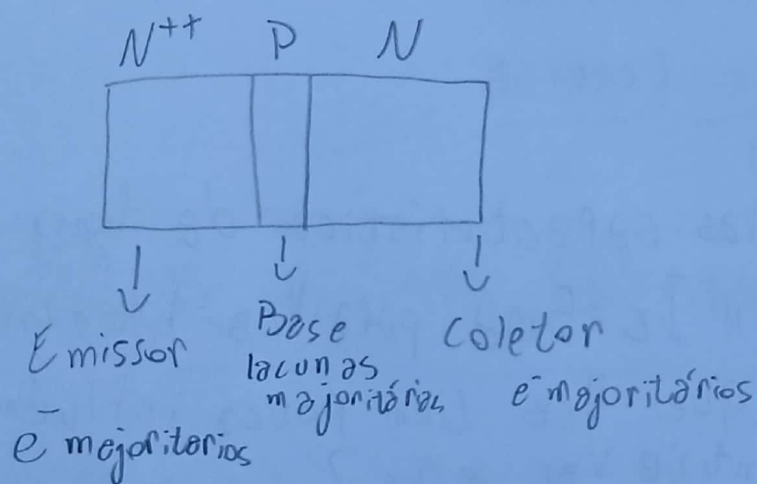 N++ P N
Emissor
e- mejoritorios
Base
lacunas
majoritárias
Coletor
e- majoritários